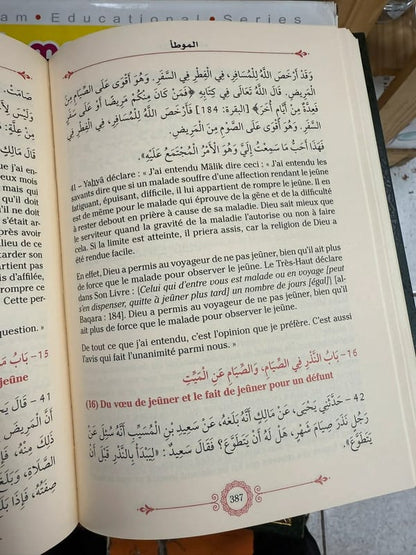 am • Educational • Series
الموطأ
وَقَدْ أَرْخَصَ اللَّهُ لِلْمُسَافِرِ، فِي الْفِطْرِ فِي السَّفَرِ. وَهُوَ أَقْوَى عَلَى الصِّيَامِ مِنَ
الْمَرِيضِ. قَالَ اللَّهُ تَعَالَى فِي كِتَابِهِ ﴿فَمَنْ كَانَ مِنْكُمْ مَرِيضًا أَوْ عَلَى سَفَرٍ
فَعِدَّةٌ مِنْ أَيَّامٍ أُخَرَ﴾ [البقرة: 184] فَأَرْخَصَ اللَّهُ لِلْمُسَافِرِ، فِي الْفِطْرِ فِي
السَّفَرِ. وَهُوَ أَقْوَى عَلَى الصَّوْمِ مِنَ الْمَرِيضِ.
فَهَذَا أَحَبُّ مَا سَمِعْتُ إِلَيَّ وَهُوَ الأَمْرُ الْمُجْتَمَعُ عَلَيْهِ».
41 – Yaḥyâ déclare : « J'ai entendu Mâlik dire ceci : « J'ai entendu les
savants dire que si un malade souffre d'une affection rendant le jeûne
fatiguant, épuisant, difficile, il lui appartient de rompre le jeûne. Il en
est de même pour le malade qui éprouve de la gêne et de la difficulté
à rester debout en prière à cause de sa maladie. Dieu sait mieux que
le serviteur quand la gravité de la maladie l'autorise ou non à faire
cela. Si la limite est atteinte, il priera assis, car la religion de Dieu a
été rendue facile.
En effet, Dieu a permis au voyageur de ne pas jeûner, bien qu'il ait plus
de force que le malade pour observer le jeûne. Le Très-Haut déclare
dans Son Livre : (Celui qui d'entre vous est malade ou en voyage [peut
s'en dispenser, quitte à jeûner plus tard] un nombre de jours [égal]) [al-
Baqara : 184]. Dieu a permis au voyageur de ne pas jeûner, bien qu'il
ait plus de force que le malade pour observer le jeûne.
De tout ce que j'ai entendu, c'est l'opinion que je préfère. C'est aussi
l'avis qui fait l'unanimité parmi nous. »
16– بَابُ النَّذْرِ فِي الصِّيَامِ، وَالصِّيَامِ عَنِ الْمَيِّتِ
(16) Du vœu de jeûner et le fait de jeûner pour un défunt
42 – حَدَّثَنِي يَحْيَى، عَنْ مَالِكٍ أَنَّهُ بَلَغَهُ، عَنْ سَعِيدِ بْنِ الْمُسَيَّبِ أَنَّهُ سُئِلَ عَنْ
رَجُلٍ نَذَرَ صِيَامَ شَهْرٍ، هَلْ لَهُ أَنْ يَتَطَوَّعَ؟ فَقَالَ سَعِيدٌ: «لِيَبْدَأْ بِالنَّذْرِ قَبْلَ أَنْ
يَتَطَوَّعَ».
387